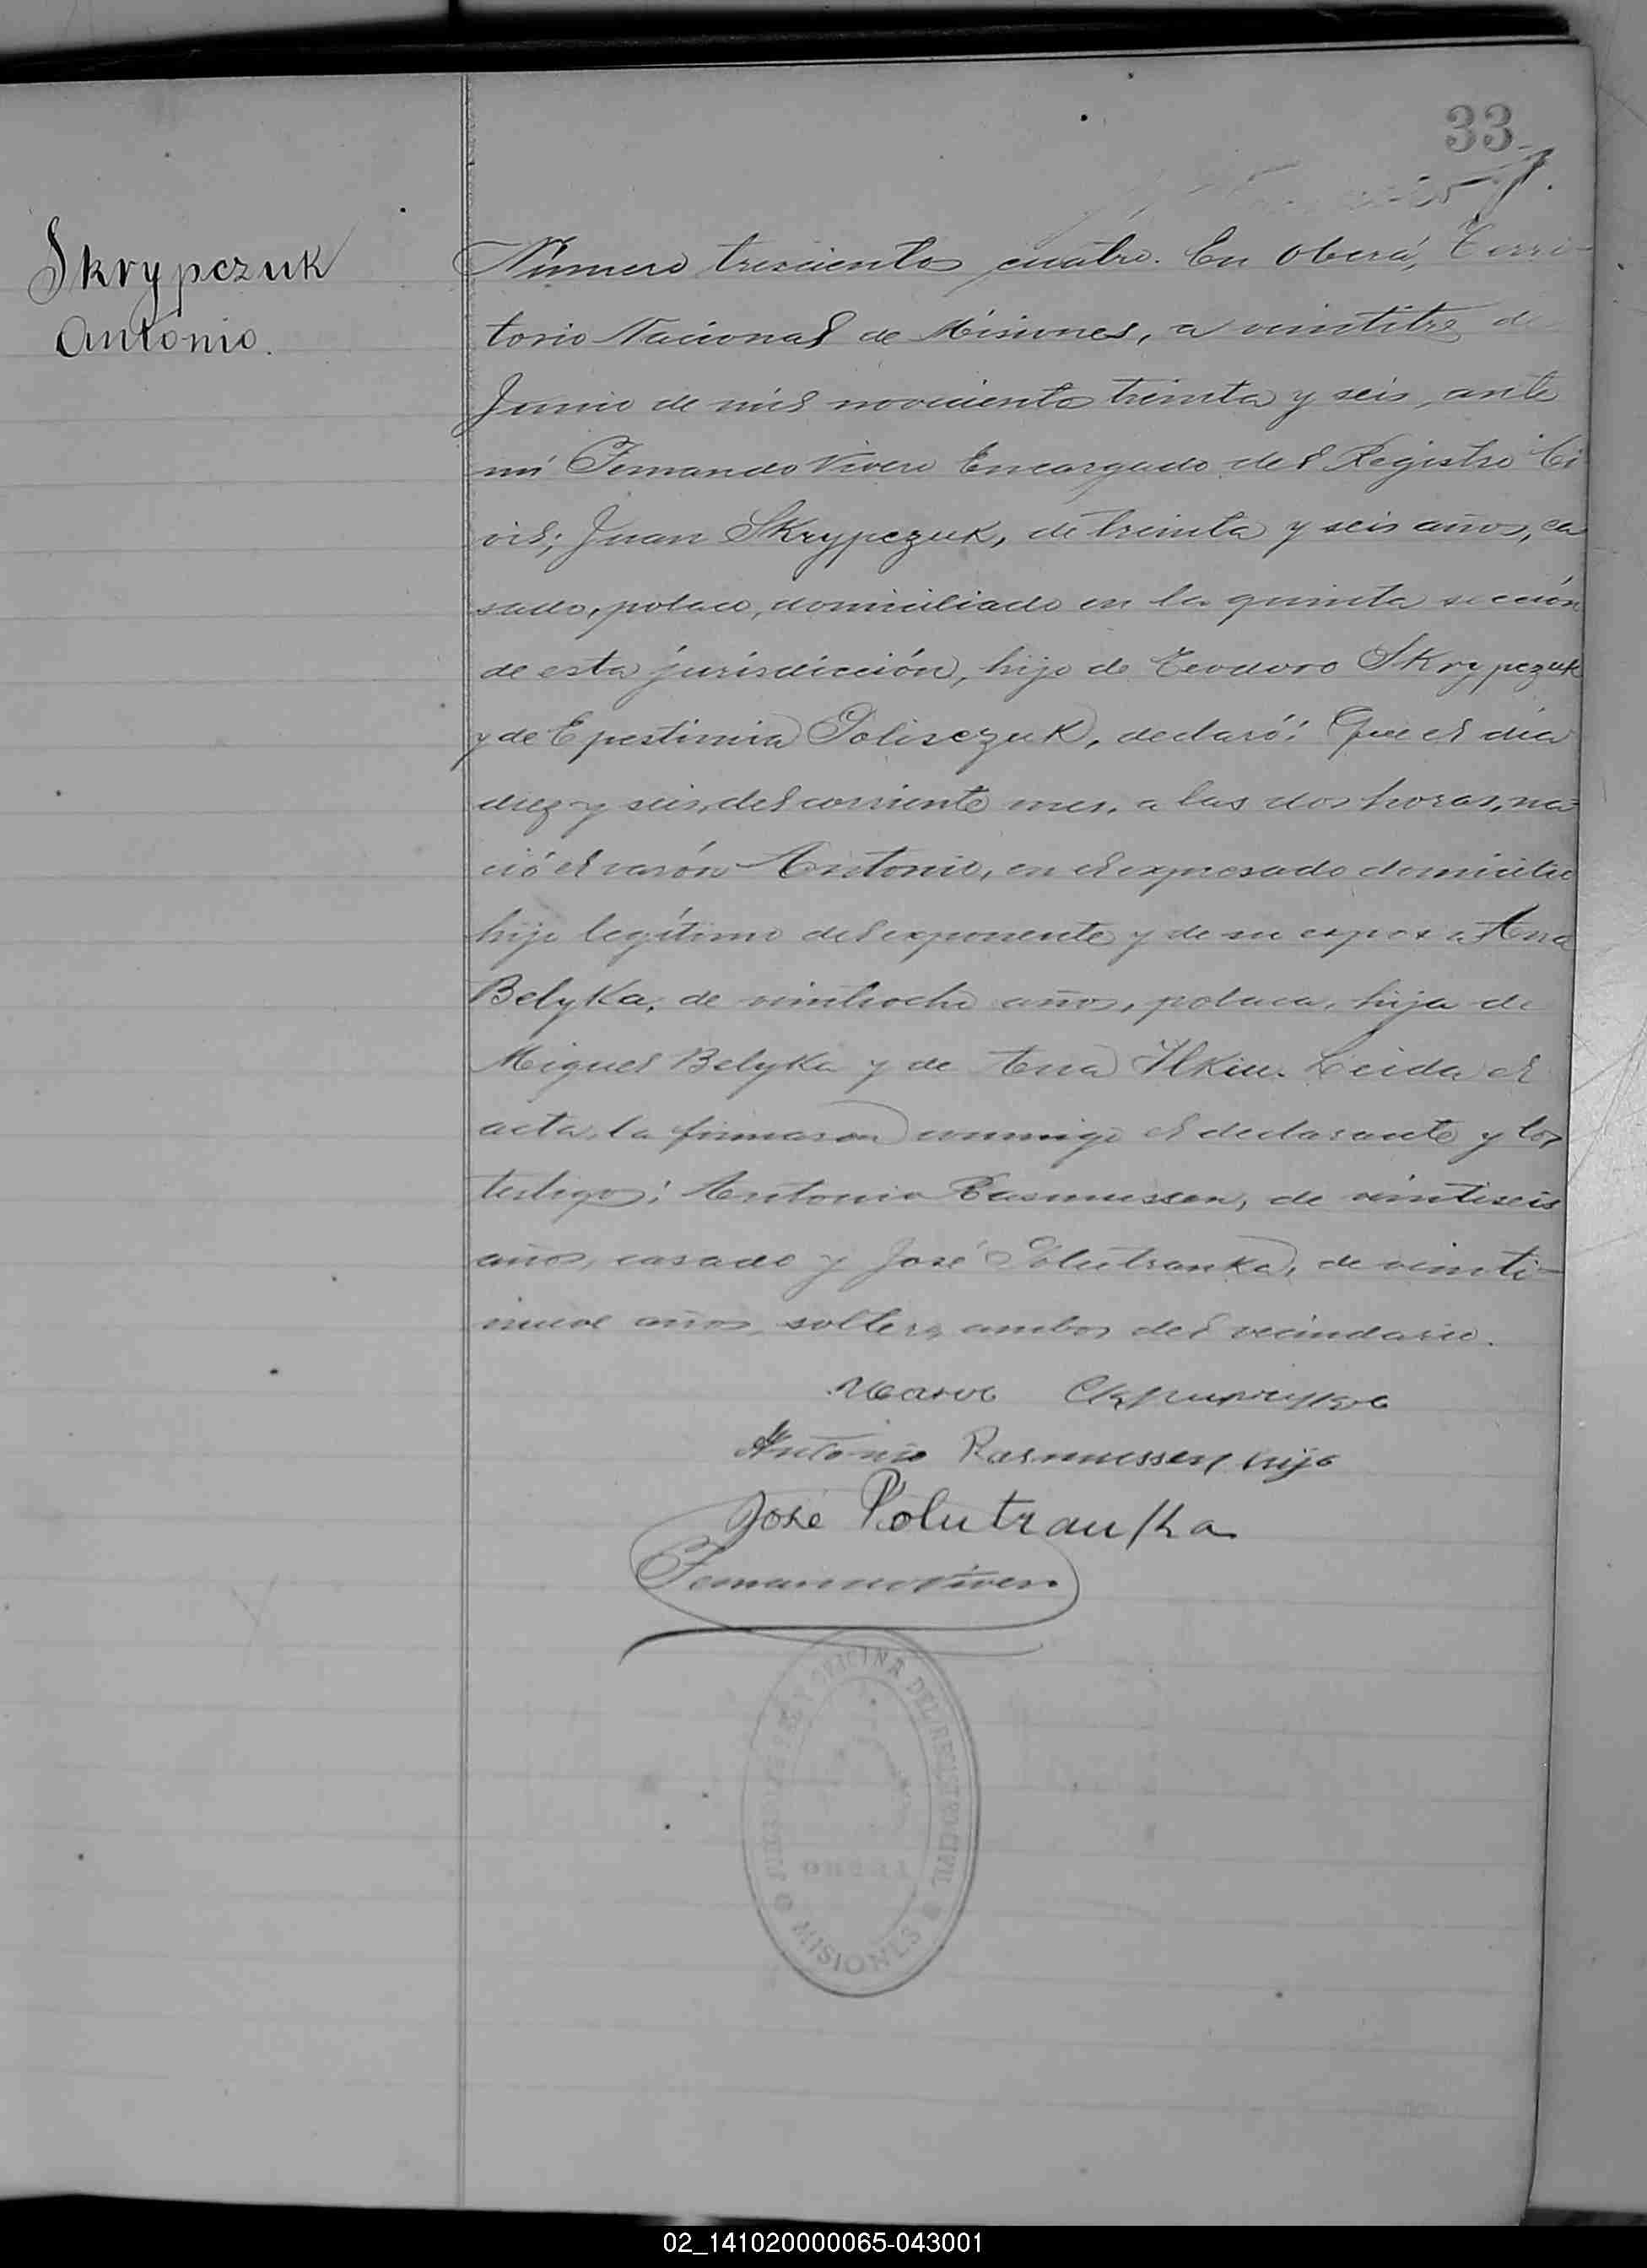 33
Skrypczuk
Antonio.
Número trescientos cuatro. En Oberá, Terri-
torio Nacional de Misiones, a veintitres de
Junio de mil novecientos treinta y seis, ante
mí Fernando Vivero Encargado del Registro Ci
vil; Juan Skrypczuk, de treinta y seis años, ca
sado, polaco, domiciliado en la quinta sección
de esta jurisdicción, hijo de Teodoro Skrypczuk
y de Epestimia Polisczuk, declaró: Que el día
diez y seis, del corriente mes, a las dos horas, na
ció el varón Antonio, en el expresado domicilio
hijo legítimo del exponente y de su esposa Ana
Belyka, de veintiocho años, polaca, hija de
Miguel Belyka y de Ana Ilkiu. Leida el
acta, la firmaron conmigo el declarante y los
testigos: Antonio Rasmussen, de veintiseis
años, casado y José Polutranka, de veinti-
nueve años, soltero, ambos del vecindario.
Antonio Rasmussen hijo
José Polutranka
Fernando Vivero
OFICINA DEL REGISTRO CIVIL
OBERÁ
MISIONES
02_141020000065-043001